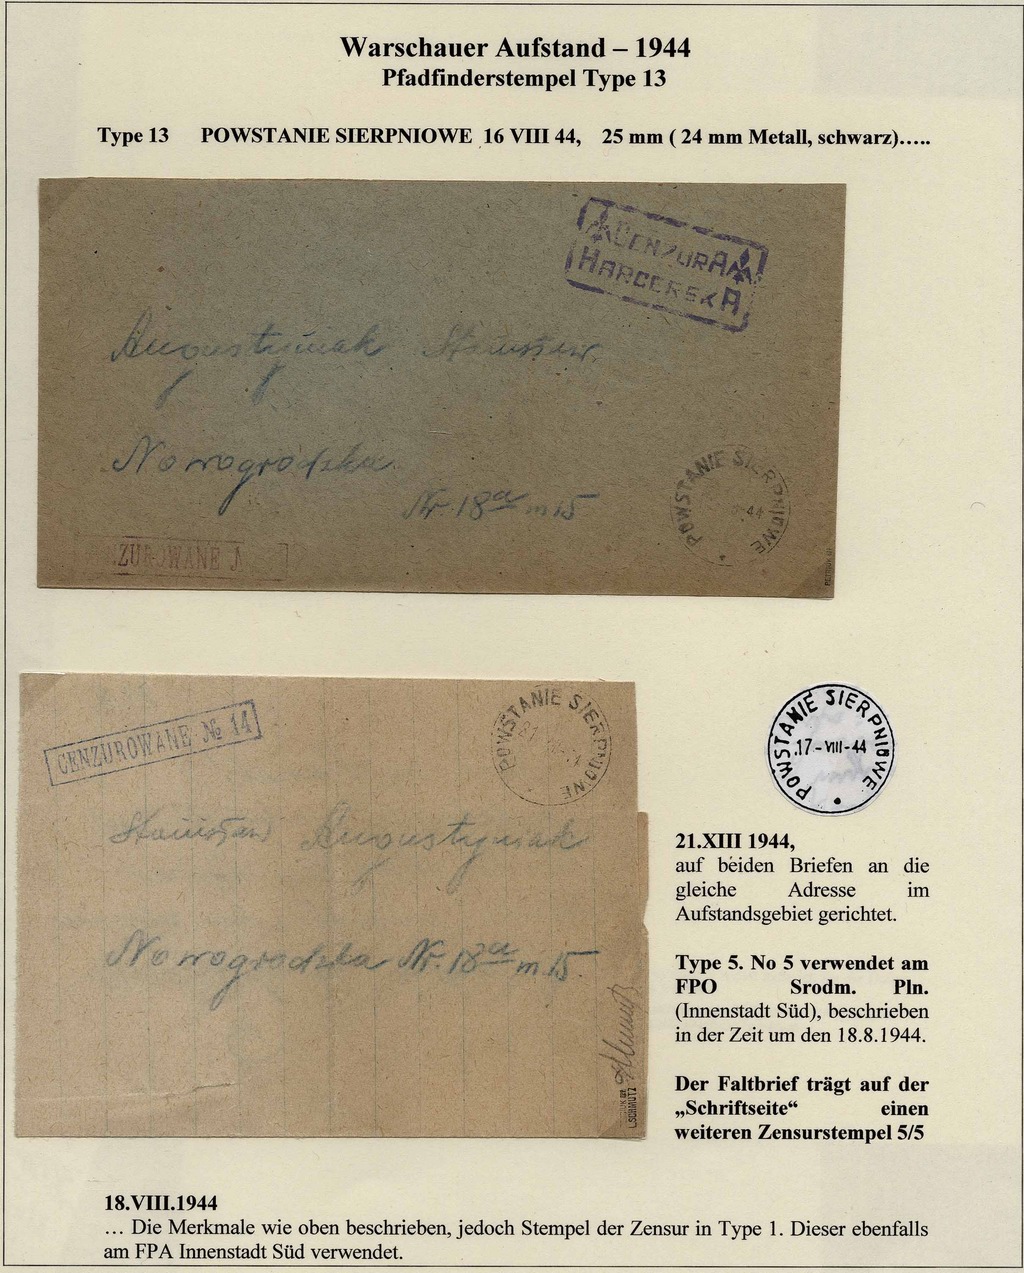 Warschauer Aufstand – 1944
Pfadfinderstempel Type 13
Type 13 POWSTANIE SIERPNIOWE 16 VIII 44, 25 mm ( 24 mm Metall, schwarz).....
CENZURA
HARCERSKA
Augustyniak Stanisław
Nowogródzka
Nr. 18a m 15
POWSTANIE SIERPNIOWE
-44
ZUROWANE
CENZUROWANE № 14
POWSTANIE SIERPNIOWE
Stanisław Augustyniak
Nowogrodzka Nr. 18a m 15.
L.SCHMUTZ
POWSTANIE SIERPNIOWE
.17-VIII-44
21.XIII 1944,
auf beiden Briefen an die
gleiche Adresse im
Aufstandsgebiet gerichtet.
Type 5. No 5 verwendet am
FPO Srodm. Pln.
(Innenstadt Süd), beschrieben
in der Zeit um den 18.8.1944.
Der Faltbrief trägt auf der
„Schriftseite“ einen
weiteren Zensurstempel 5/5
18.VIII.1944
... Die Merkmale wie oben beschrieben, jedoch Stempel der Zensur in Type 1. Dieser ebenfalls
am FPA Innenstadt Süd verwendet.